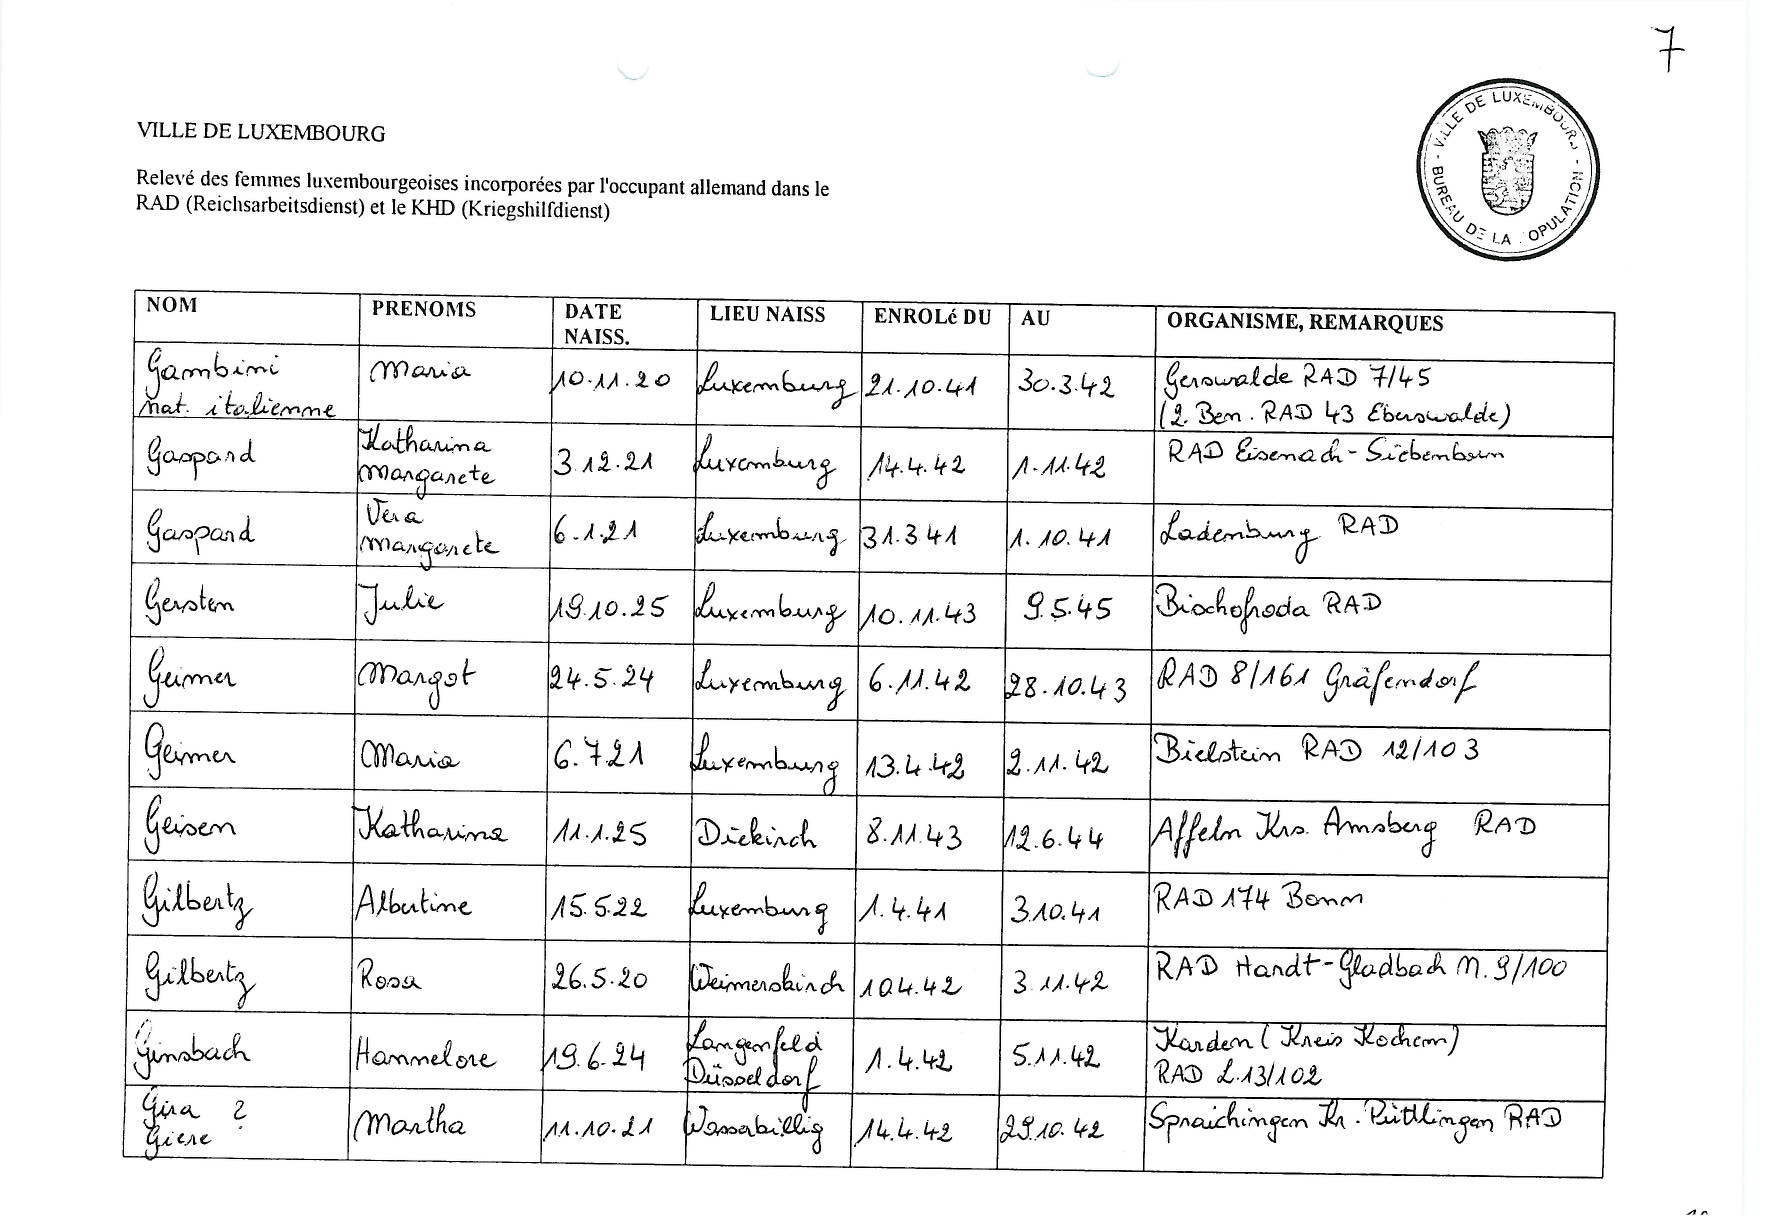 7
VILLE DE LUXEMBOURG
VILLE DE LUXEMBOURG - BUREAU DE LA POPULATION -
Relevé des femmes luxembourgeoises incorporées par l'occupant allemand dans le
RAD (Reichsarbeitsdienst) et le KHD (Kriegshilfdienst)
NOM PRENOMS DATE NAISS. LIEU NAISS ENROLé DU AU ORGANISME, REMARQUES
Gambini Maria 10.11.20 Luxemburg 21.10.41 30.3.42 Gerswalde RAD 7/45
nat. italienne (2. Bem. RAD 43 Eberswalde)
Gaspard Katharina Margarete 3.12.21 Luxemburg 14.4.42 1.11.42 RAD Eisenach-Siebenborn
Gaspard Vera Margarete 6.1.21 Luxemburg 31.3.41 1.10.41 Ladenburg RAD
Gersten Julie 19.10.25 Luxemburg 10.11.43 9.5.45 Bischofroda RAD
Geimer Margot 24.5.24 Luxemburg 6.11.42 28.10.43 RAD 8/161 Gräfendorf
Geimer Maria 6.7.21 Luxemburg 13.4.42 2.11.42 Bielstein RAD 12/103
Geisen Katharina 11.1.25 Diekirch 8.11.43 12.6.44 Affeln Krs. Arnsberg RAD
Gilbertz Albertine 15.5.22 Luxemburg 1.4.41 3.10.41 RAD 174 Bonn
Gilbertz Rosa 26.5.20 Weimerskirch 10.4.42 3.11.42 RAD Hardt-Gladbach N. 9/100
Ginsbach Hannelore 19.6.24 Langenfeld Düsseldorf 1.4.42 5.11.42 Karden (Kreis Kochem)
RAD L.13/102
Gira ? Martha 11.10.21 Wasserbillig 14.4.42 29.10.42 Spraichingen Kr. Rüttlingen RAD
Giere